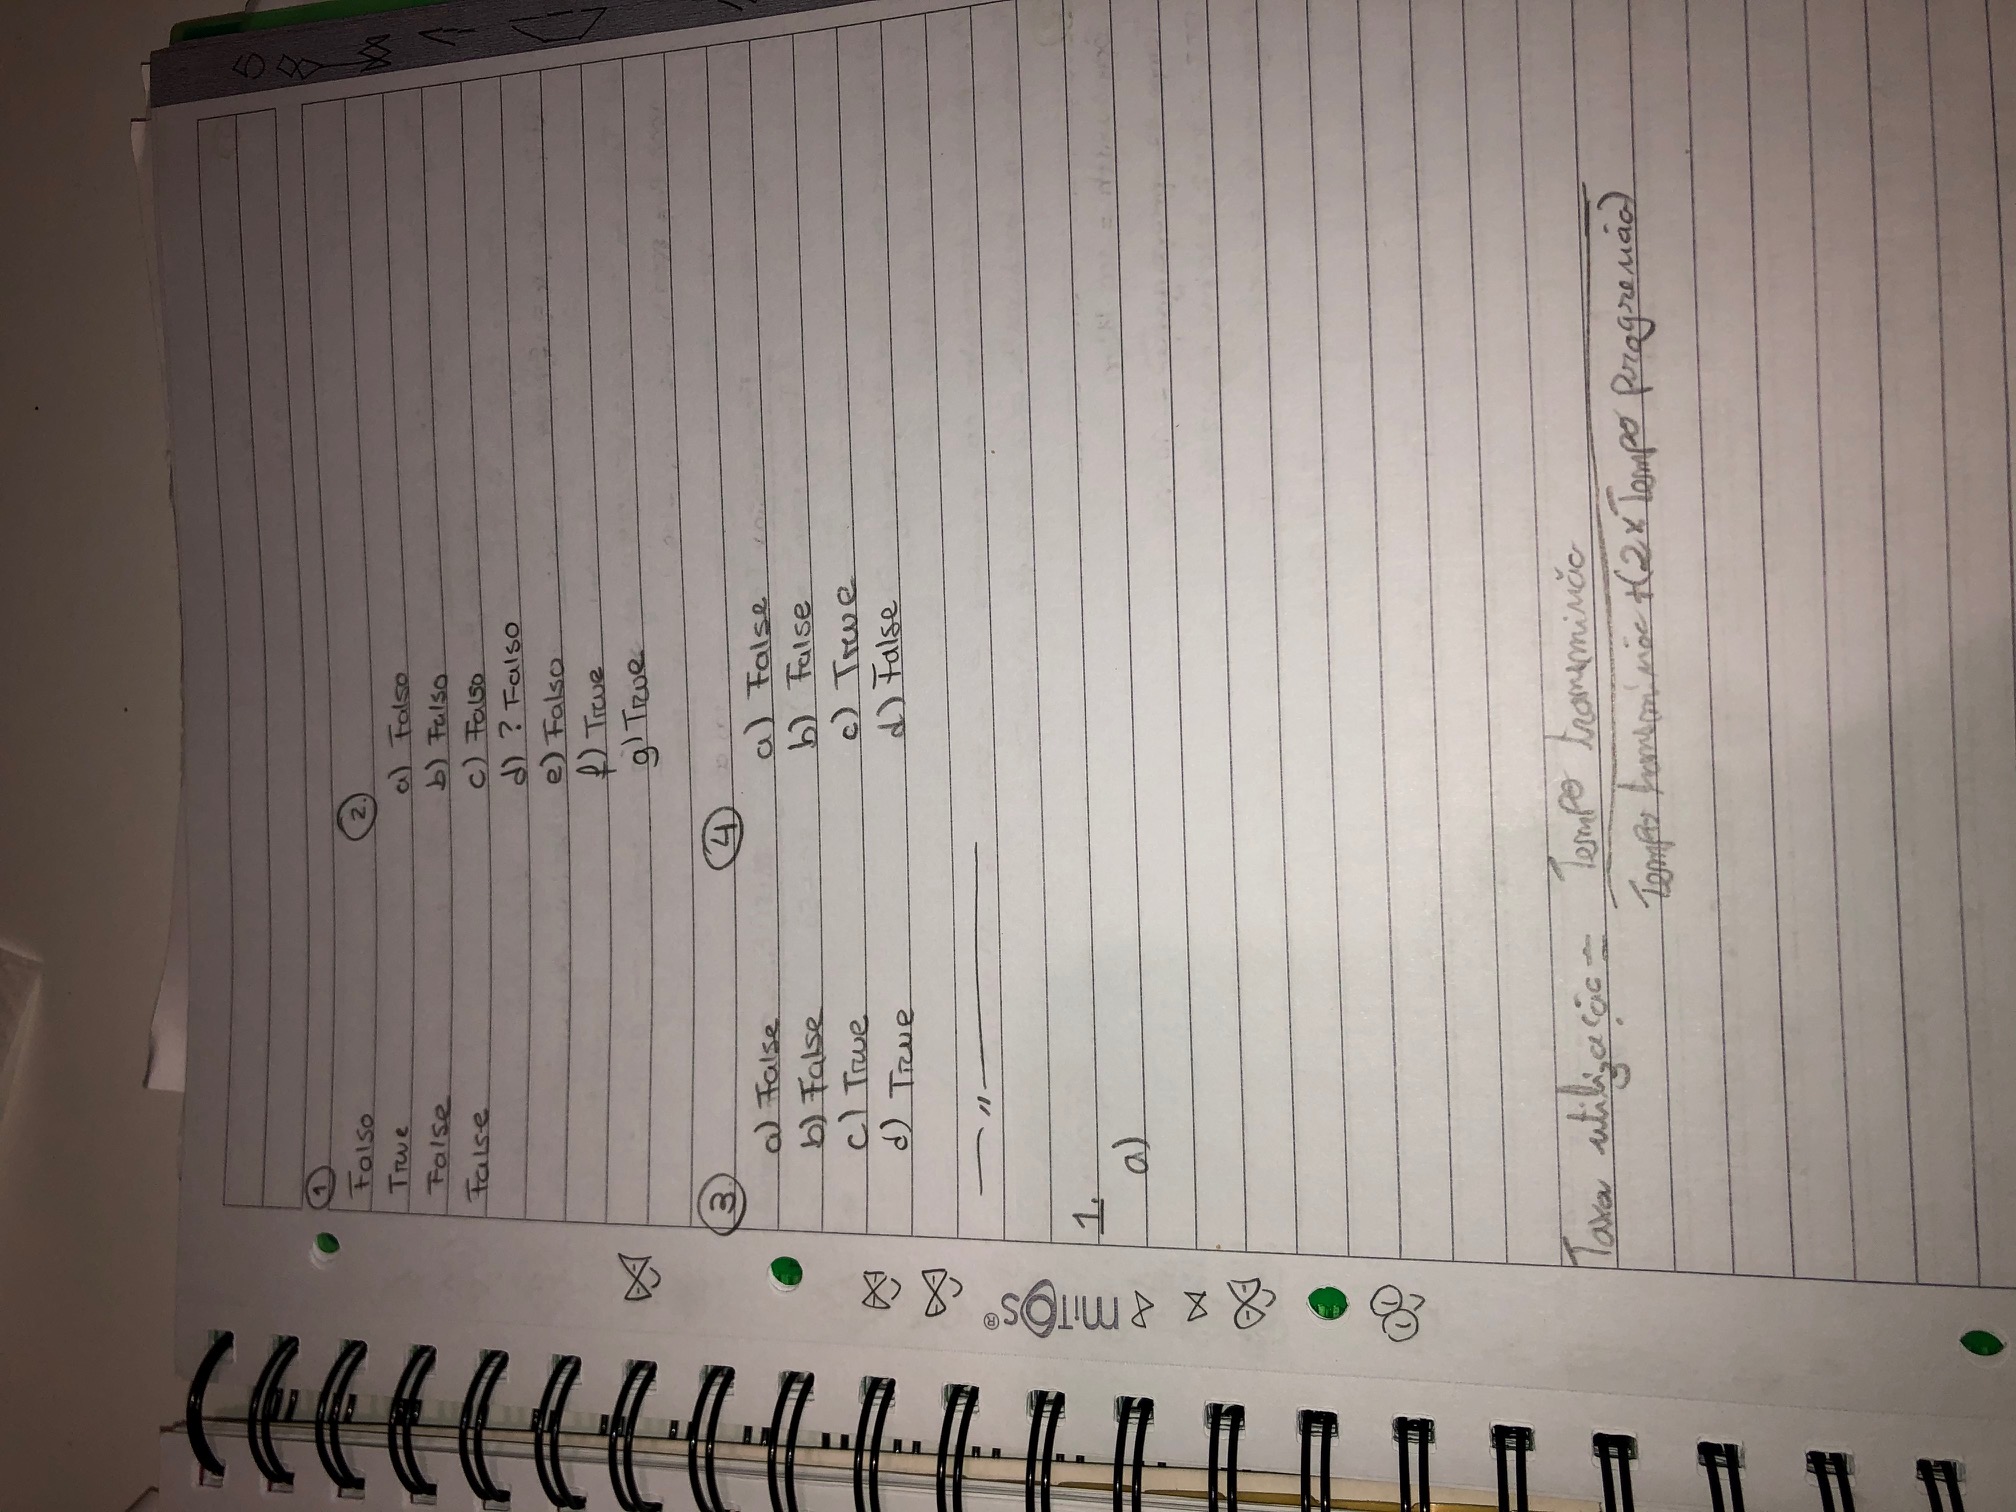 1
Falso
True
False
False
2.
a) Falso
b) Falso
c) Falso
d) ? Falso
e) Falso
f) True
g) True
3.
a) False
b) False
c) True
d) True
4
a) False
b) False
c) True
d) False
1.
a)
Taxa utilização = Tempo transmissão
Tempo transmissão + (2 x Tempo progressão)
mitos®